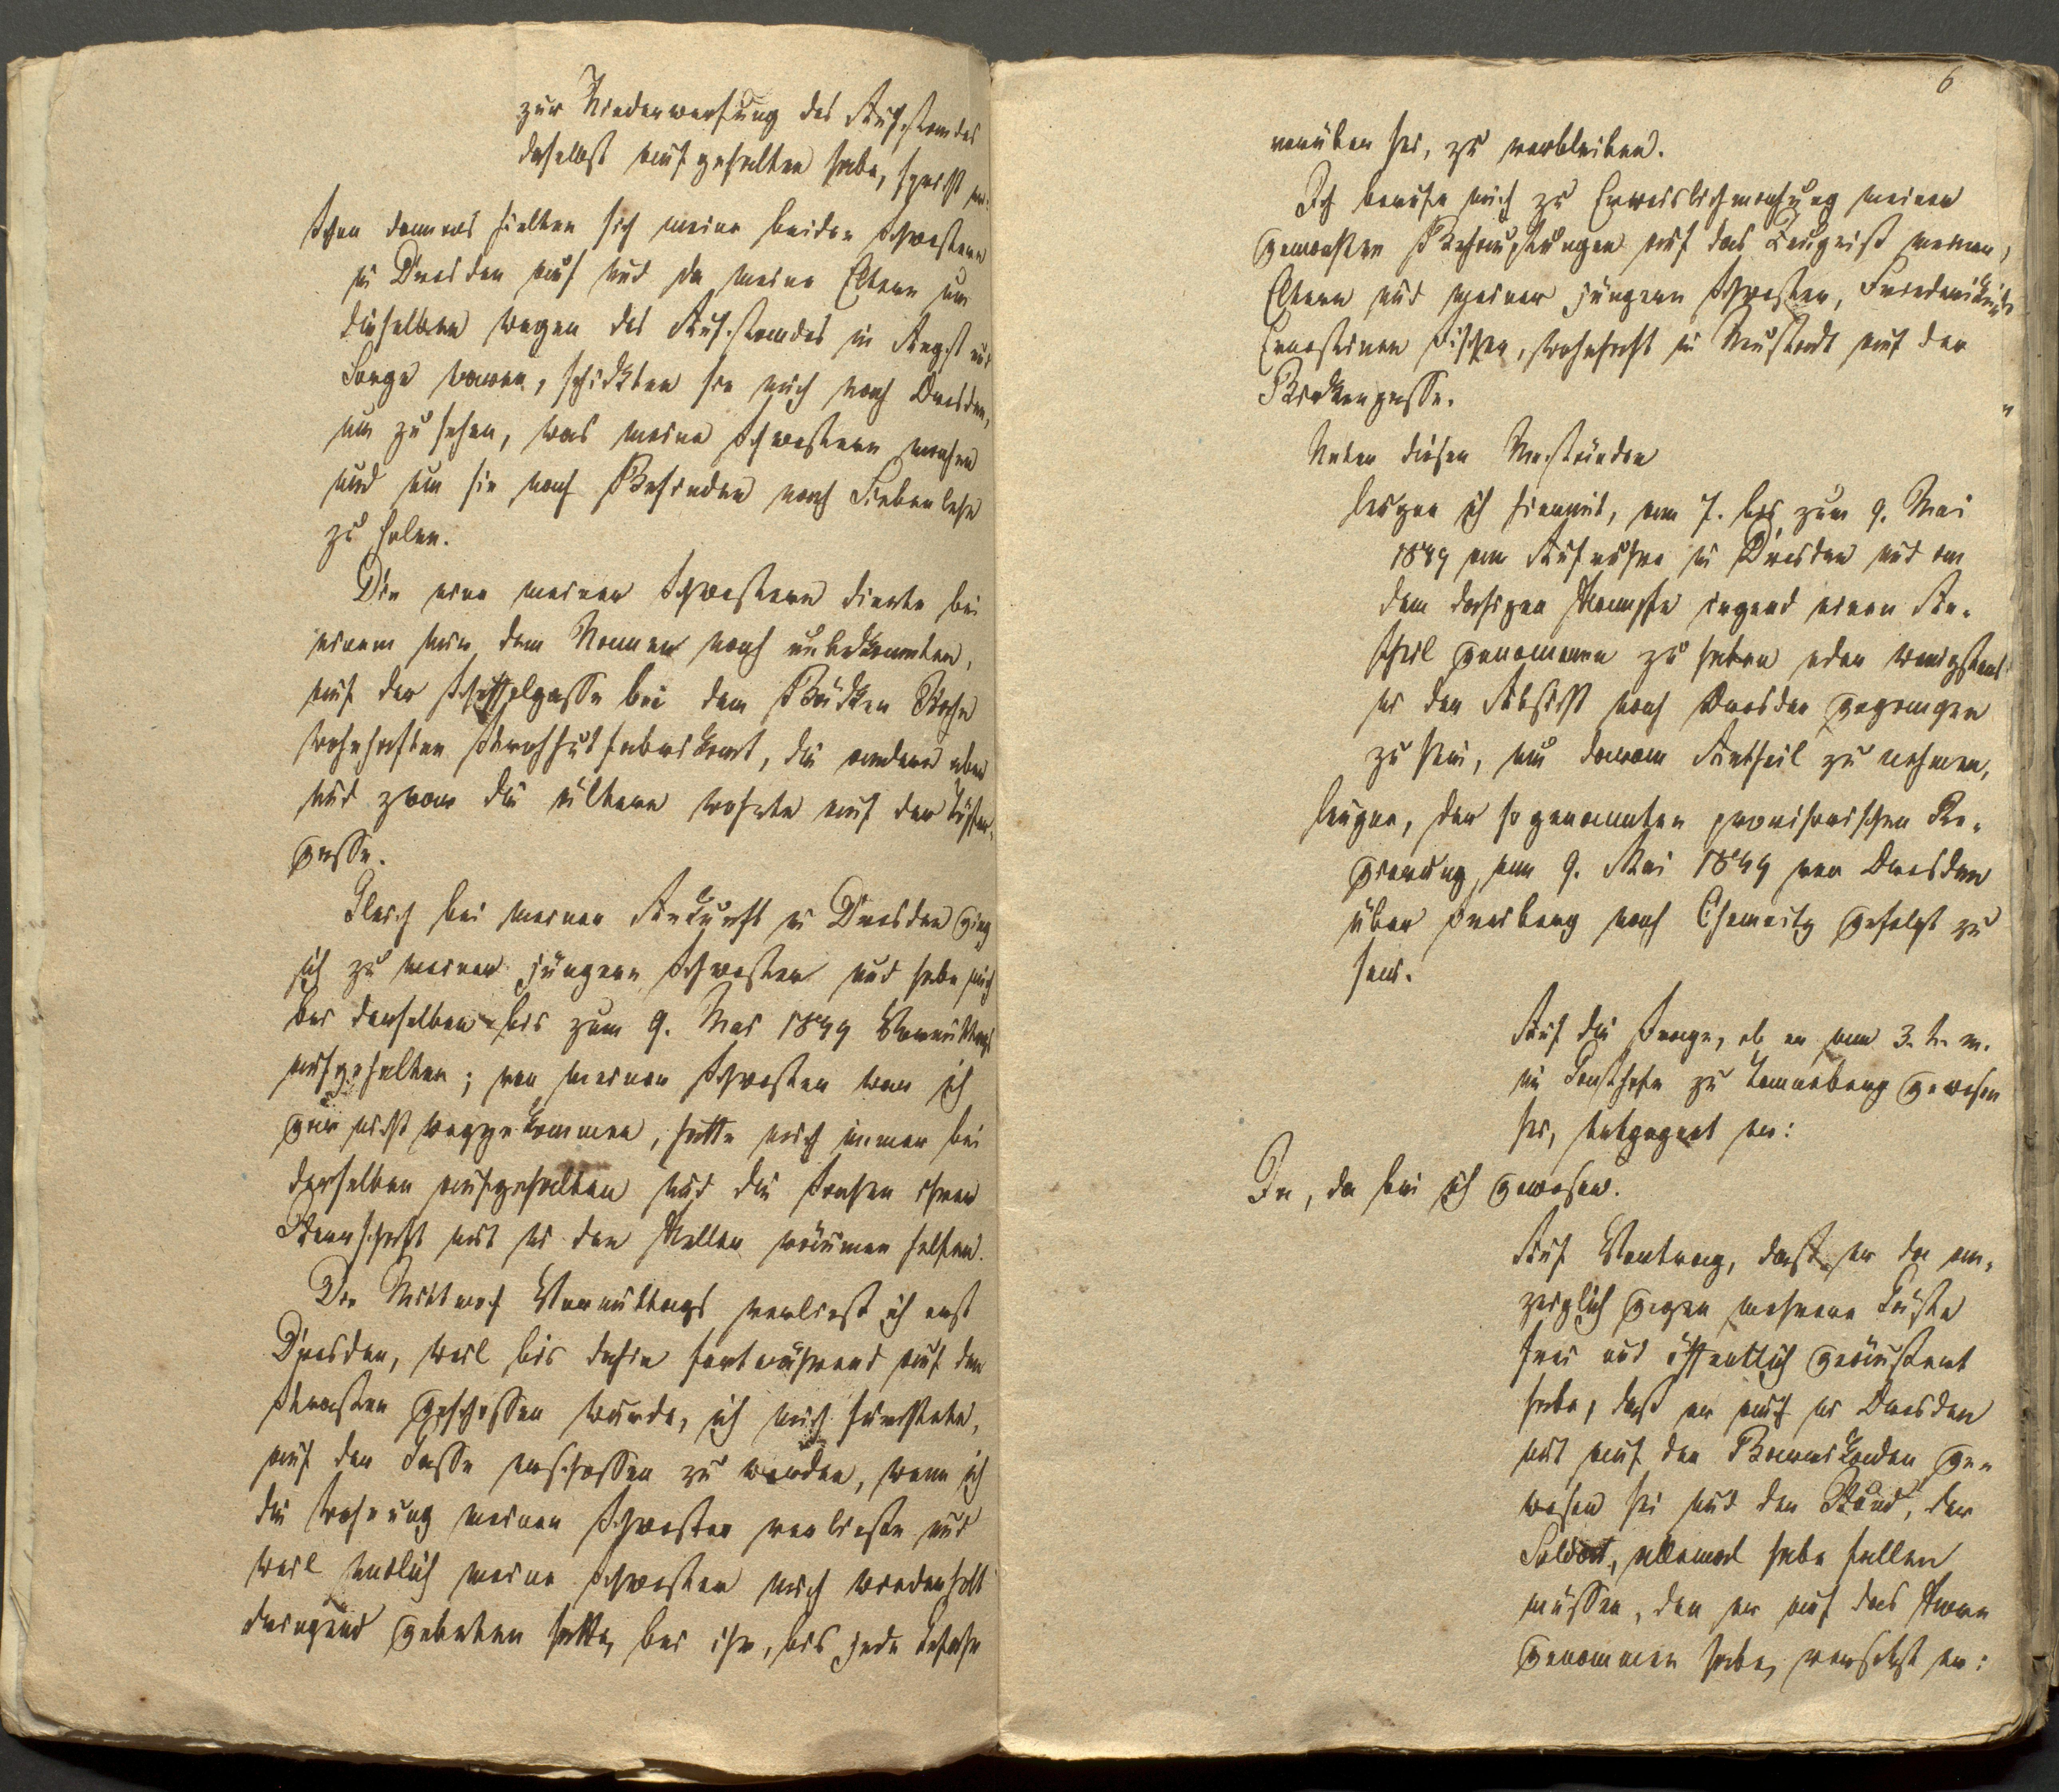 zur Niederwerfung des Aufstandes
daselbst aufgehalten habe, spricht er:
Schon damals hielten sich meine beiden Schwestern
in Dresden auf und da meine Eltern um
dieselben wegen des Aufstandes in Angst und
Sorge waren, schickten sie mich nach Dresden,
um zu sehen, was meine Schwestern machen
und um sie nach Befinden nach Siebenlehn
zu holen.
Die eine meiner Schwestern diente bei
einem mir dem Namen nach unbekannten,
auf der Scheffelgasse bei dem Bäcker
wohnhaften Strohhutfabrikant, die andere aber
und zwar die ältere wohnte auf der
gasse.
Gleich bei meiner Ankunft in Dresden ging
ich zu meiner jüngern Schwester und habe mich
bei derselben bis zum 9. Mai 1849 Vormittags
aufgehalten; von meiner Schwester war ich
gar nicht weggekommen, hatte mich immer bei
derselben aufgehalten und die Sachen ihrer
Herrschaft mit in den Keller räumen helfen.
Die Mittwoch Vormittags verließ ich erst
Dresden, weil bis dahin fortwährend auf den
Straßen geschossen wurde, ich mich fürchtete,
auf der Gasse erschossen zu werden, wenn ich
die Wohnung meiner Schwester verließe und
weil endlich meine Schwester mich wiederholt
dringend gebeten hatte, bei ihr, bis jede Gefahr
6
vorüber sei, zu verbleiben.
Ich berufe mich zu Erweislichmachung meiner
gemachten Behauptungen auf das Zeugniß meiner
Eltern und meiner jüngern Schwester, Friederike
Ernestinen Fischer, wohnhaft in Neustadt auf der
gasse.
Unter diesen Umständen
leugne ich hiermit, vom 7. bis zum 9. Mai
1849 am Aufruhre in Dresden und an
dem dasigen Kampfe irgend einen An-
theil genommen zu haben oder wenigstens
in der Absicht nach Dresden gegangen
zu sein, um daran Antheil zu nehmen,
leugne, der sogenannten provisorischen Re-
gierung am 9. Mai 1849 von Dresden
über Freiberg nach Chemnitz gefolgt zu
sein.
Auf die Frage, ob er am 3. d. M.
im Gasthofe zu Tanneberg gewesen
sei, entgegnet er:
Ja, da bin ich gewesen.
Auf Vortrag, daß er da an-
zeiglich gegen mehrere Gäste
frei und öffentlich geäußert
habe, daß er auch in Dresden
mit auf den Barrikaden ge-
wesen sei und der Hund, der
Soldat, allemal habe fallen
müssen, den er auf das Korn
genommen habe, versetzt er: